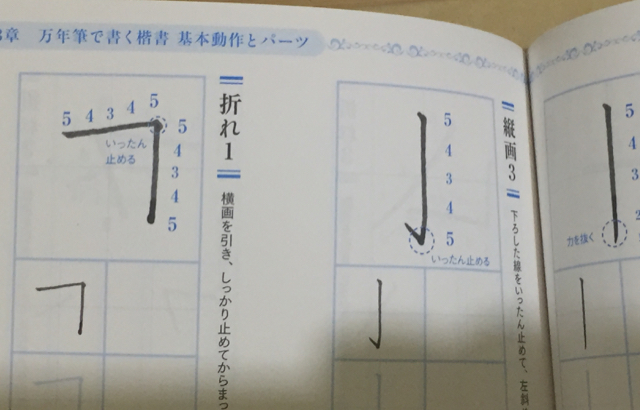 章 万年筆で書く楷書 基本動作とパーツ
縦画3
下ろした線をいったん止めて、左斜
5
4
3
4
5
いったん止める
折れ1
横画を引き、しっかり止めてからまっ
5 4 3 4 5
5
4
3
4
5
いったん
止める
5
4
3
2
力を抜く